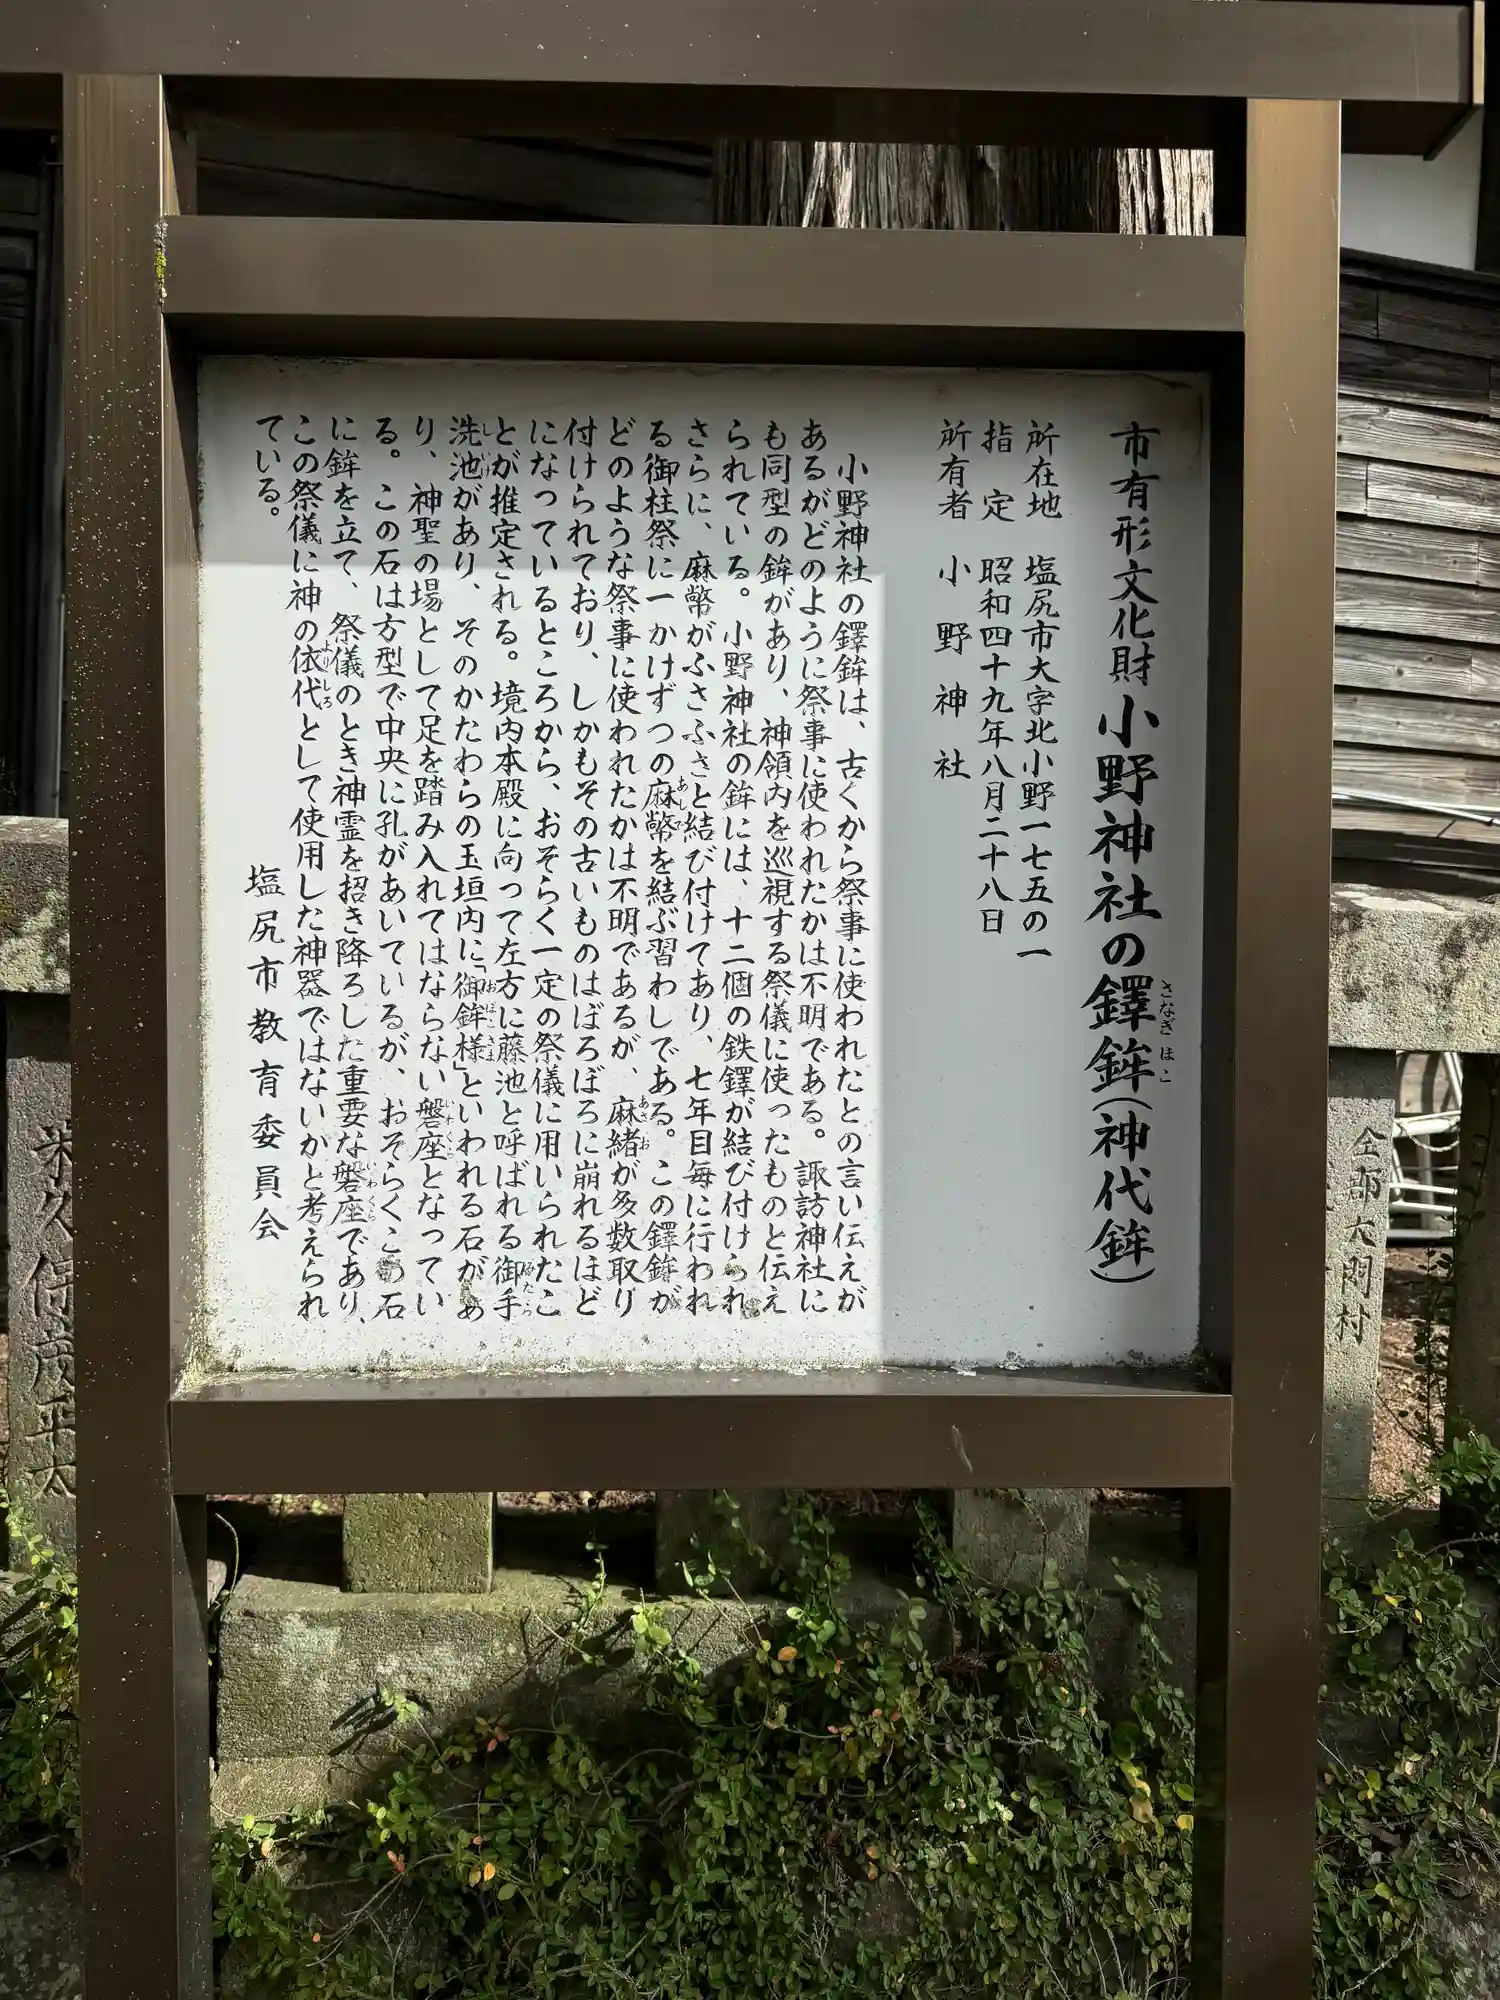 市有形文化財 小野神社の鐸鉾(神代鉾)
さなぎ ほこ
所在地 塩尻市大字北小野一七五の一
指定 昭和四十九年八月二十八日
所有者 小野神社
小野神社の鐸鉾は、古くから祭事に使われたとの言い伝えが
あるがどのように祭事に使われたかは不明である。諏訪神社に
も同型の鉾があり、神領内を巡視する祭儀に使ったものと伝え
られている。小野神社の鉾には、十二個の鉄鐸が結び付けられ
さらに、麻幣がふさふさと結び付けてあり、七年目毎に行われ
る御柱祭に一かけずつの麻幣を結ぶ習わしである。この鐸鉾が
あしで
どのような祭事に使われたかは不明であるが、麻緒が多数取り
あさお
付けられており、しかもその古いものはぼろぼろに崩れるほど
になっているところから、おそらく一定の祭儀に用いられたこ
とが推定される。境内本殿に向って左方に藤池と呼ばれる御手
みたら
洗池があり、そのかたわらの玉垣内に「御鉾様」といわれる石があ
しいけ おぼこさま
り、神聖の場として足を踏み入れてはならない磐座となってい
いわくら
る。この石は方型で中央に孔があいているが、おそらくこの石
に鉾を立て、祭儀のとき神霊を招き降ろした重要な磐座であり、
いわくら
この祭儀に神の依代として使用した神器ではないかと考えられ
よりしろ
ている。
塩尻市教育委員会
全部大門村
米久保広平太